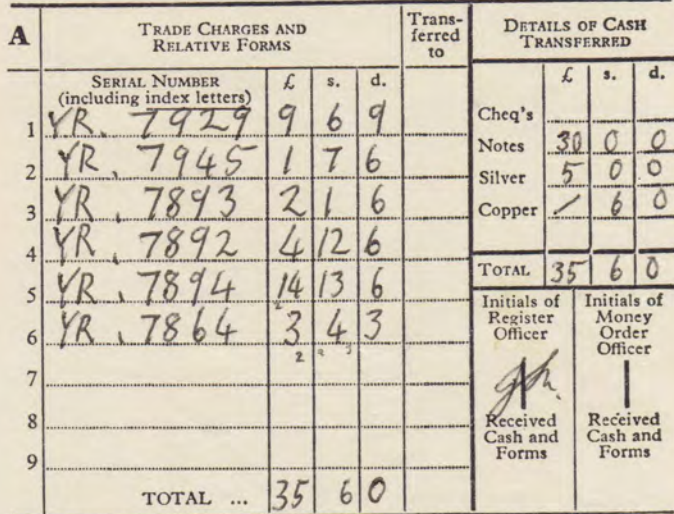 A
TRADE CHARGES AND
RELATIVE FORMS
Trans-
ferred
to
SERIAL NUMBER
(including index letters)
£ s. d.
1 YR. 7929 9 6 9
2 YR. 7945 1 7 6
3 YR. 7893 2 1 6
4 YR. 7892 4 12 6
5 YR. 7894 14 13 6
6 YR. 7864 3 4 3
7
8
9
TOTAL ... 35 6 0
DETAILS OF CASH
TRANSFERRED
£ s. d.
Cheq's
Notes 30 0 0
Silver 5 0 0
Copper / 6 0
TOTAL 35 6 0
Initials of
Register
Officer
Received
Cash and
Forms
Initials of
Money
Order
Officer
Received
Cash and
Forms